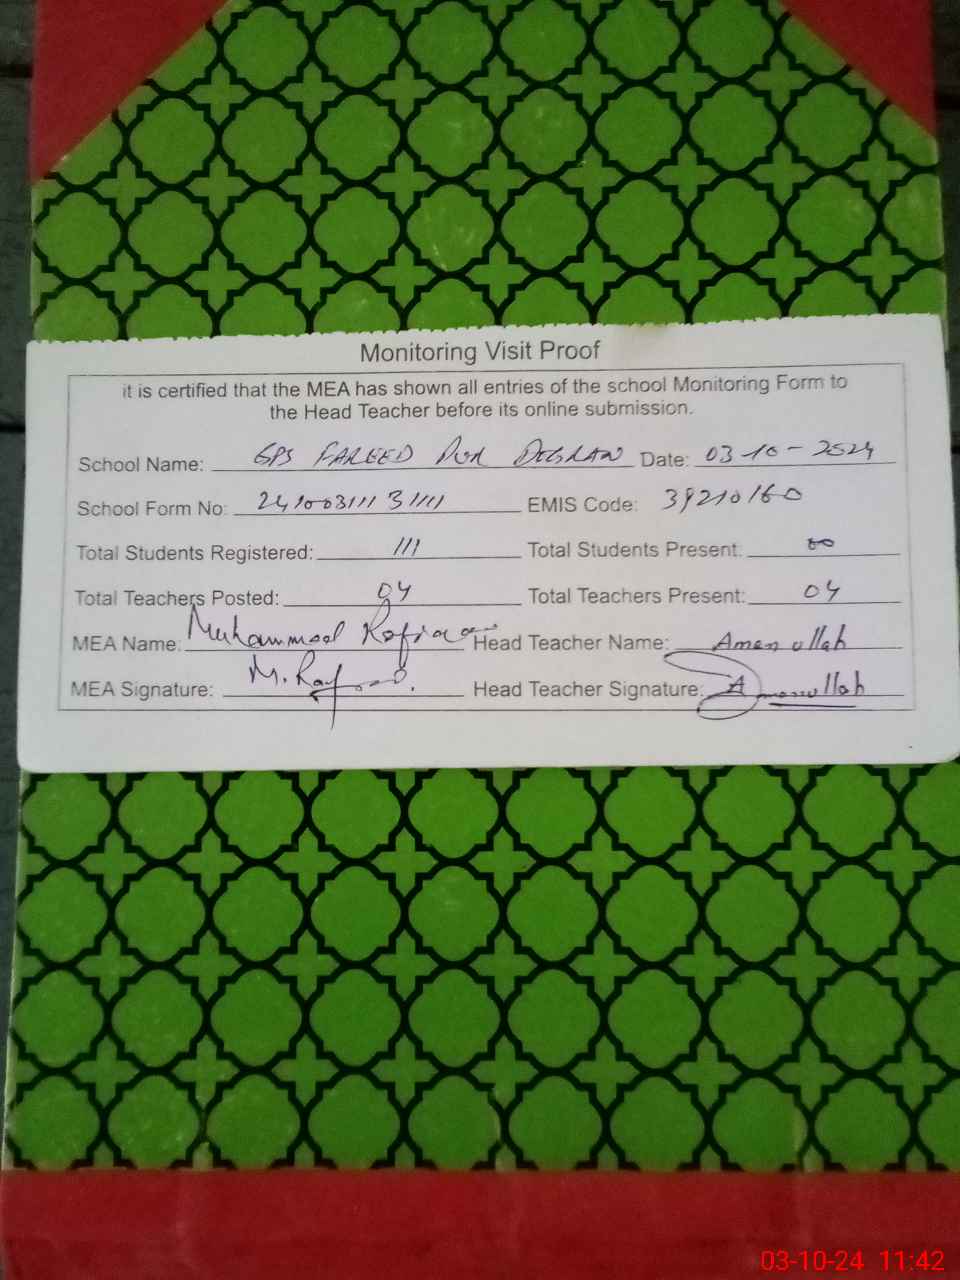 Monitoring Visit Proof
it is certified that the MEA has shown all entries of the school Monitoring Form to
the Head Teacher before its online submission.
School Name: GPS FAREED PUR DOGRAN Date: 03-10-2024
School Form No: EMIS Code: 39210160
Total Students Registered: 111 Total Students Present: 00
Total Teachers Posted: 04 Total Teachers Present: 04
MEA Name: Muhammad Head Teacher Name: Aman ullah
MEA Signature: Head Teacher Signature: Amanullah
03-10-24 11:42